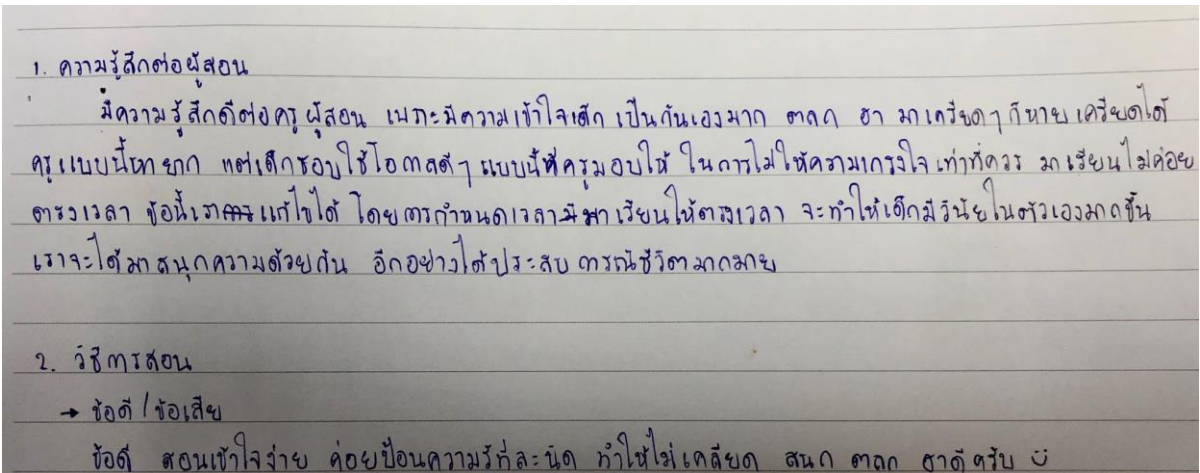 1. ความรู้สึกต่อผู้สอน
มีความรู้สึกดีต่อครูผู้สอน เพราะมีความเข้าใจเด็ก เป็นกันเองมาก ตลก ฮา มาเครียดๆ ก็หายเครียดได้
ครูแบบนี้หายาก แต่เด็กชอบใช้โอกาสดีๆ แบบนี้ที่ครูมอบให้ ในการไม่ให้ความเกรงใจ เท่าที่ควร มาเรียนไม่ค่อย
ตรงเวลา ข้อนี้เราแก้ไขได้ โดยการกำหนดเวลามาเรียนให้ตรงเวลา จะทำให้เด็กมีวินัยในตัวเองมากขึ้น
เราจะได้มาสนุกความด้วยกัน อีกอย่างได้ประสบการณ์ชีวิตมากมาย
2. วิธีการสอน
→ ข้อดี / ข้อเสีย
ข้อดี สอนเข้าใจง่าย ค่อยป้อนความรู้ทีละนิด ทำให้ไม่เคลียด สนุก ตลก ฮาดีครับ